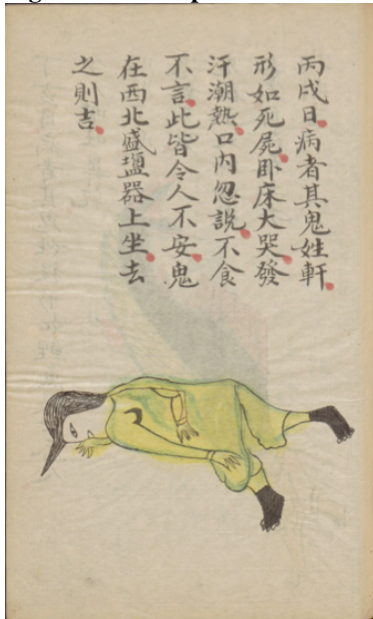 丙戌日病者其鬼姓軒
形如死屍卧床大哭發
汗潮熱口内忽說不食
不言此皆令人不安鬼
在西北盛塩器上坐去
之則吉